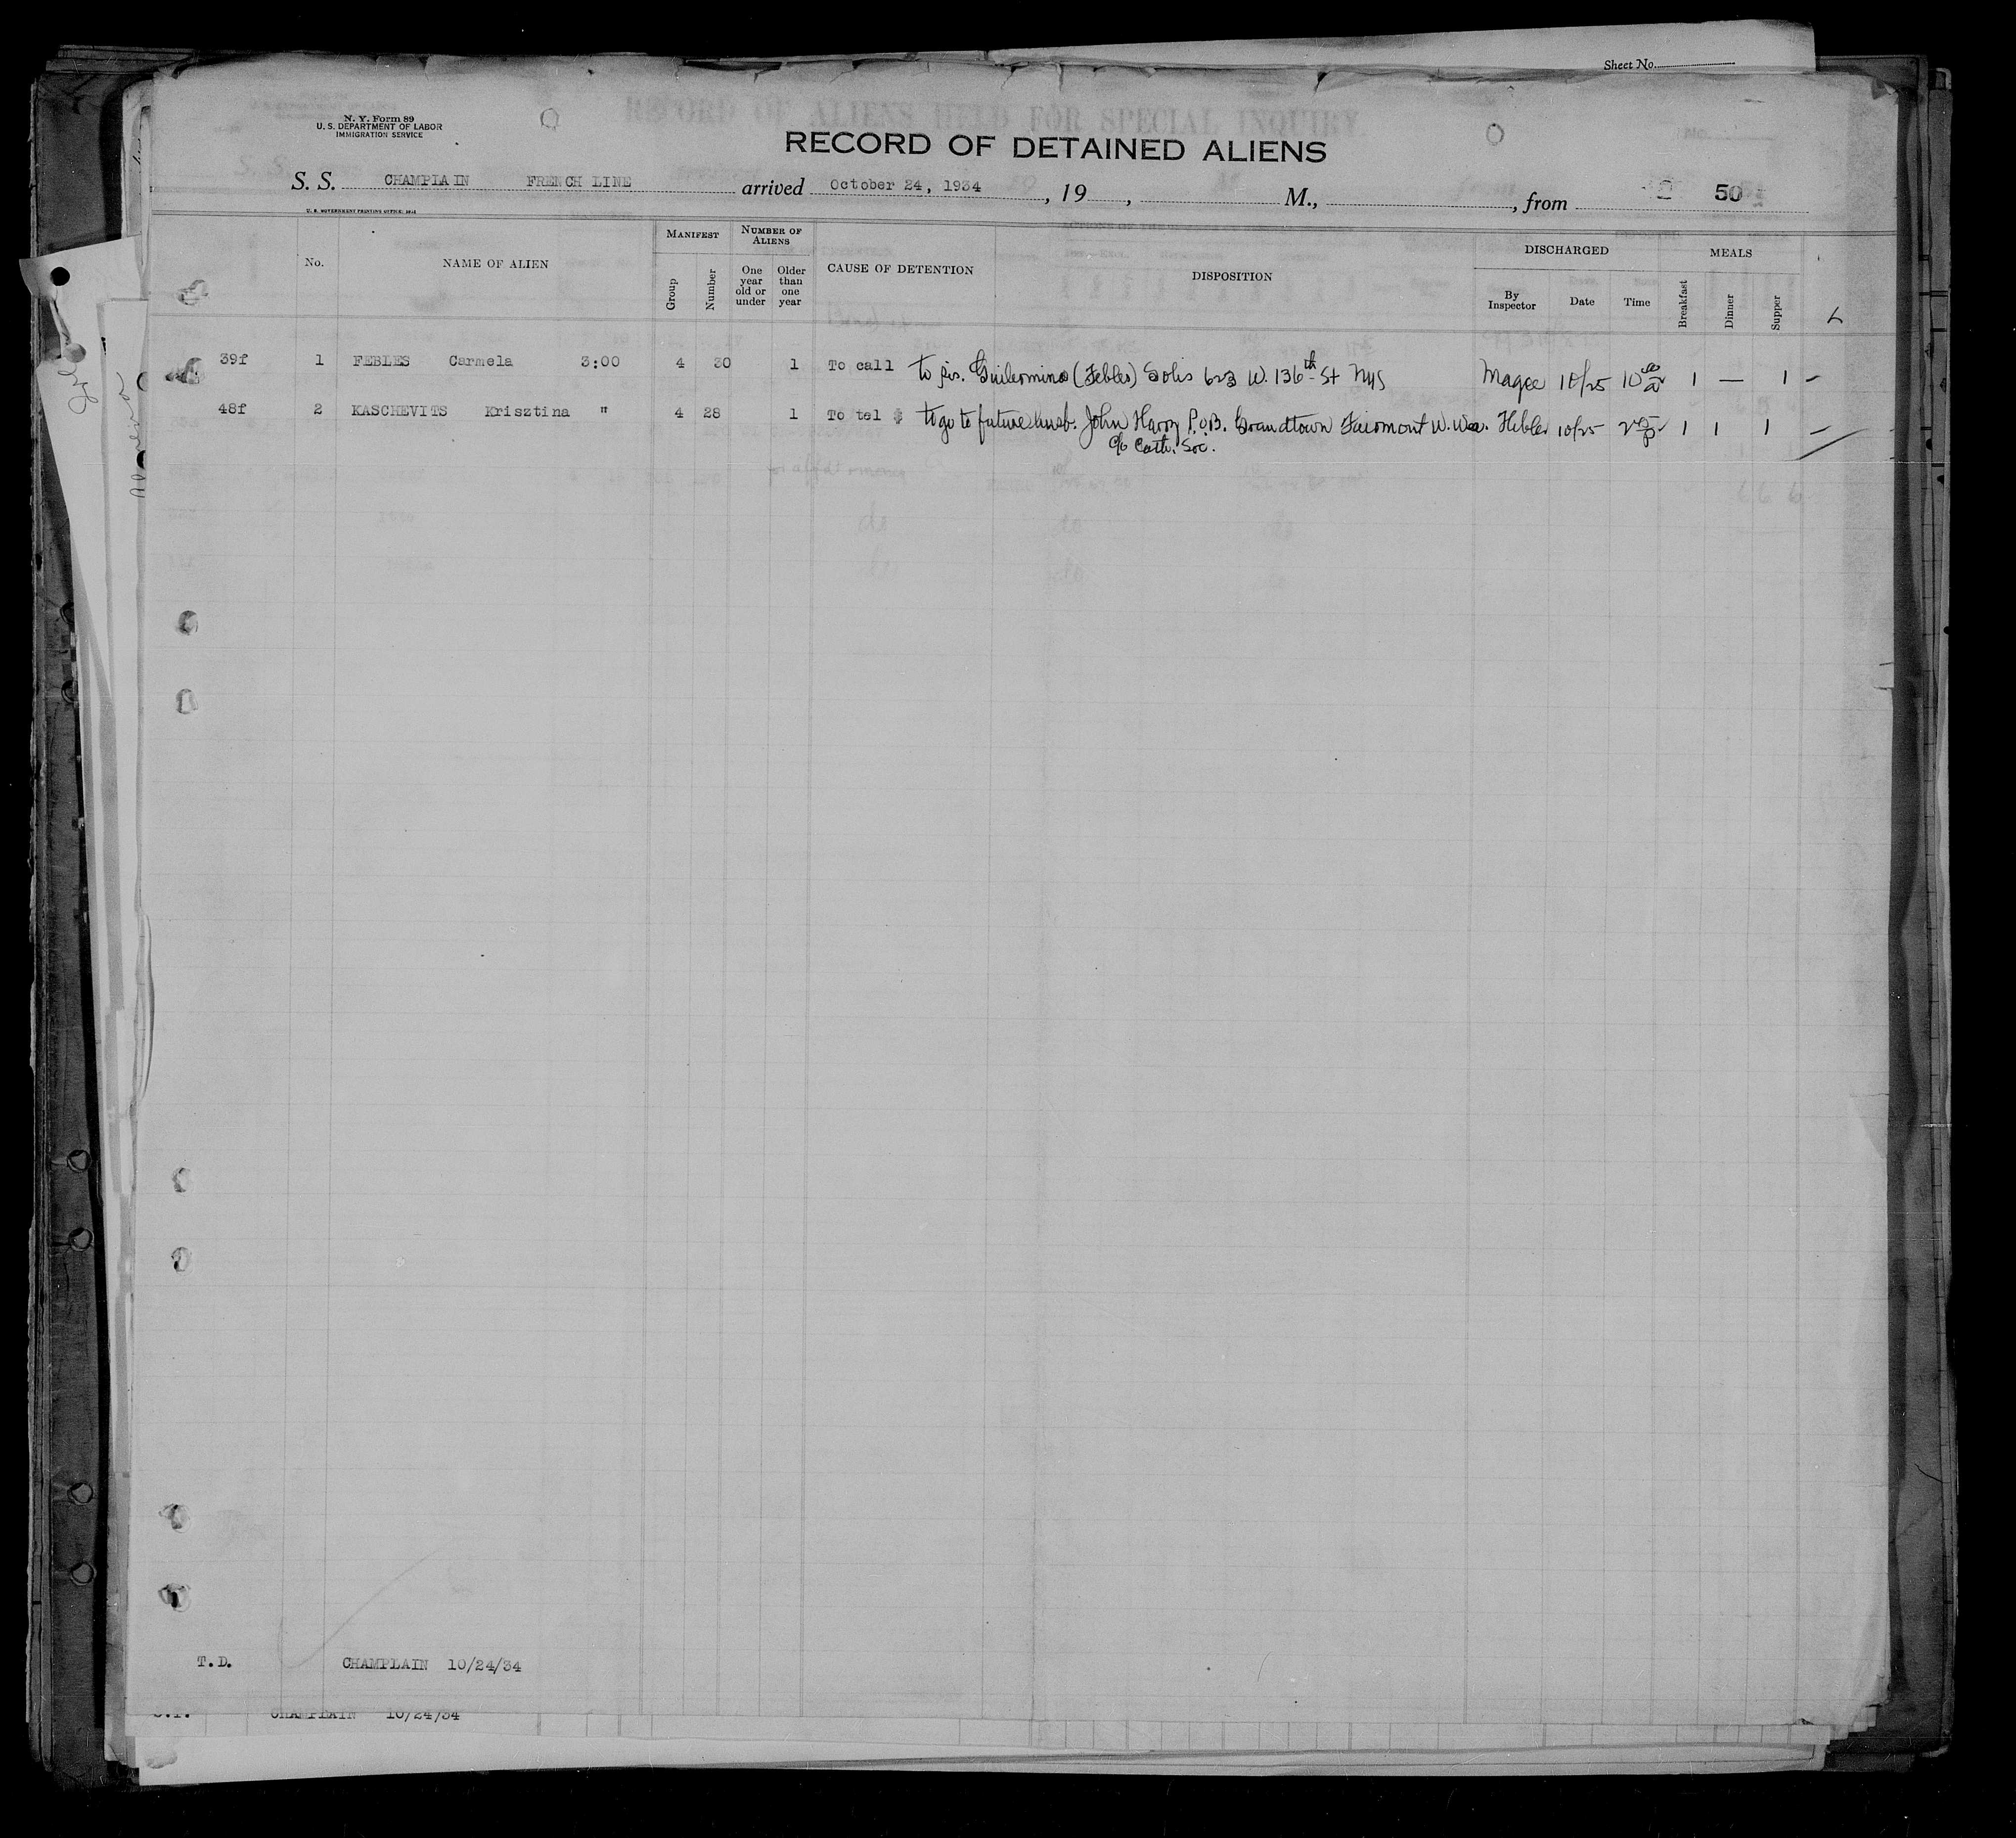 Sheet No.
N. Y. Form 89
U. S. DEPARTMENT OF LABOR
IMMIGRATION SERVICE
RECORD OF ALIENS HELD FOR SPECIAL INQUIRY
RECORD OF DETAINED ALIENS
S. S. CHAMPLAIN FRENCH LINE arrived October 24, 1934, 19, M., from 50
U. S. GOVERNMENT PRINTING OFFICE
No. NAME OF ALIEN MANIFEST Group Number NUMBER OF ALIENS One year old or under Older than one year CAUSE OF DETENTION DISPOSITION DISCHARGED By Inspector Date Time MEALS Breakfast Dinner Supper
39f 1 FEBLES Carmela 3:00 4 30 1 To call to sis. Guilermina (Febles) Solis 623 W. 136th St NYC Magee 10/25 10 a 1 — 1 -
48f 2 KASCHEVITS Krisztina " 4 28 1 To tel $ to go to future husb. John Harry P.O.B. Grandtown Fairmont W. Va. Hibler 10/25 2 p 1 1 1
c/o Cath. Soc.
T.D. CHAMPLAIN 10/24/34
S.I. CHAMPLAIN 10/24/34